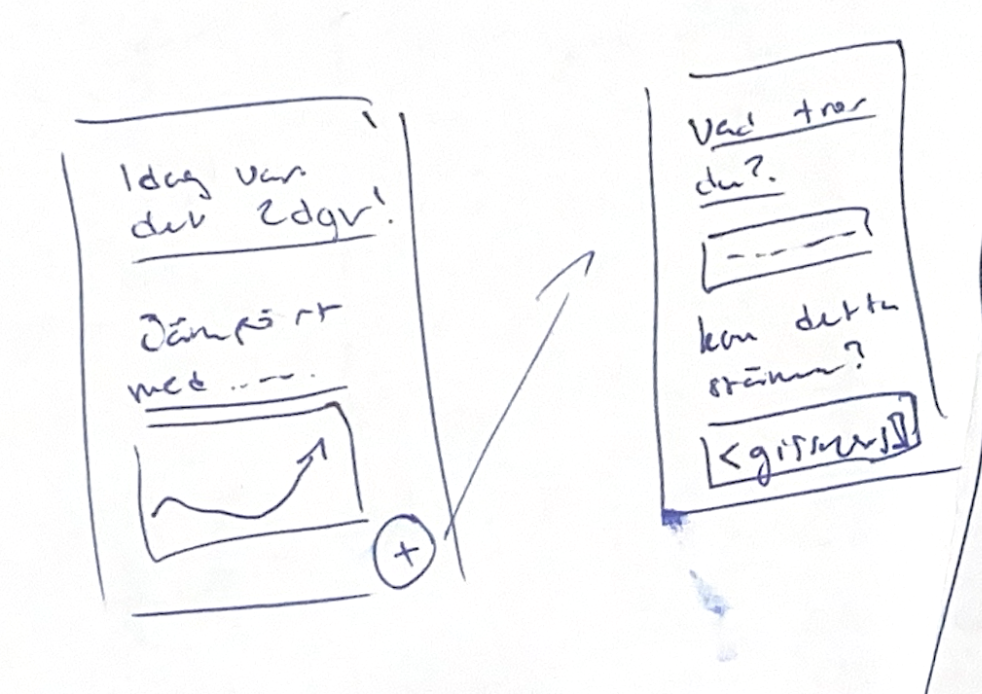 Idag var
det 2dgr!
Jämfört
med ......
+
Vad tror
du?
kan detta
stämma?